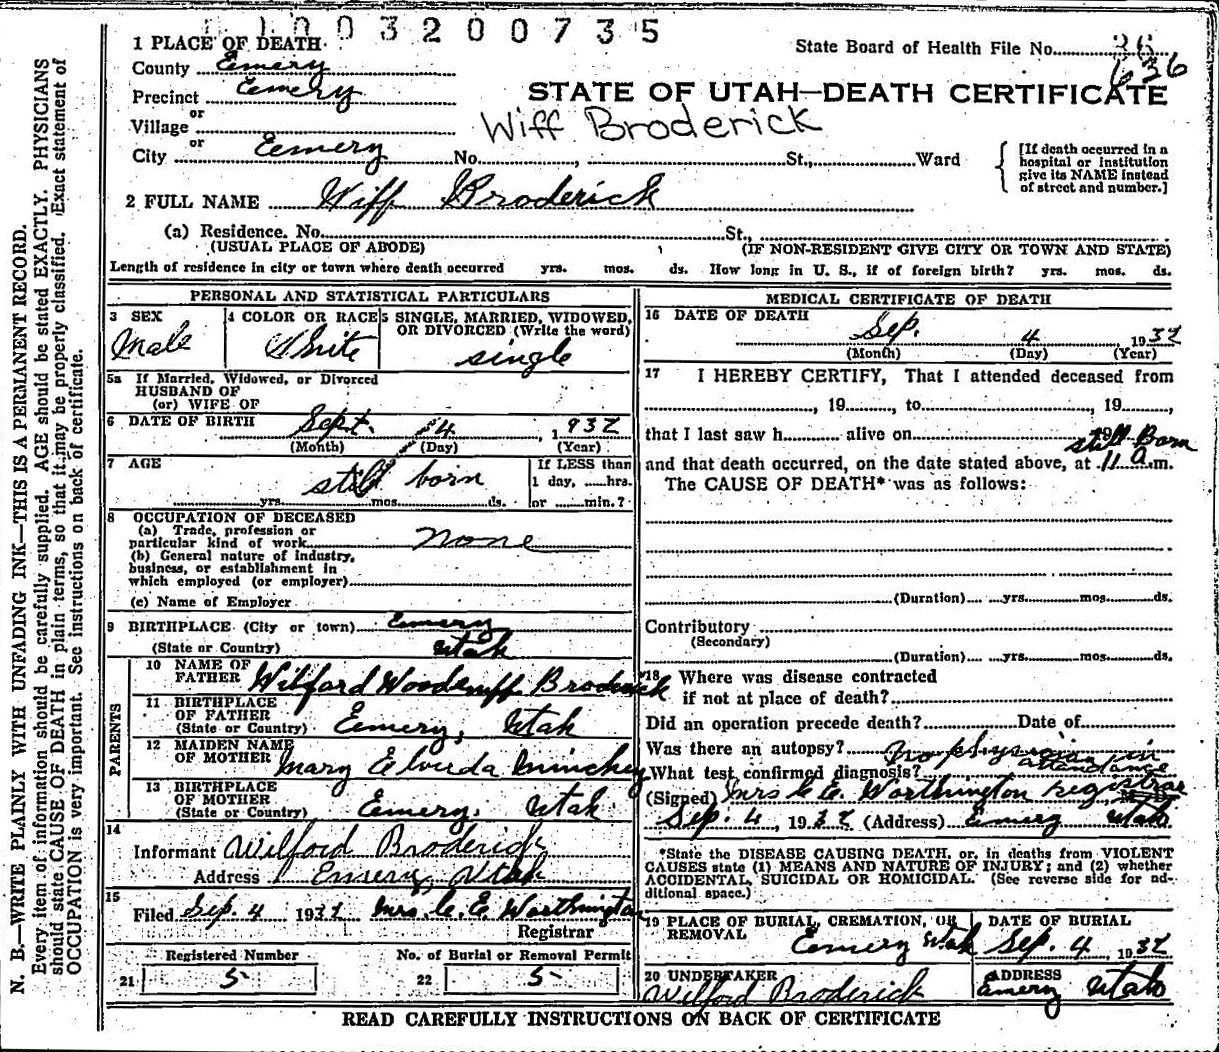 1003200735
1 PLACE OF DEATH
State Board of Health File No. 36
636
County Emery
Precinct Emery
STATE OF UTAH—DEATH CERTIFICATE
or
Village
Wiff Broderick
or
City Emery No. , St., Ward
[If death occurred in a hospital or institution give its NAME instead of street and number.]
2 FULL NAME Wiff Broderick
(a) Residence. No. St.,
(USUAL PLACE OF ABODE) (IF NON-RESIDENT GIVE CITY OR TOWN AND STATE)
Length of residence in city or town where death occurred yrs. mos. ds. How long in U. S., if of foreign birth? yrs. mos. ds.
PERSONAL AND STATISTICAL PARTICULARS
3 SEX
Male
4 COLOR OR RACE
White
5 SINGLE, MARRIED, WIDOWED,
OR DIVORCED (Write the word)
single
5a If Married, Widowed, or Divorced
HUSBAND OF
(or) WIFE OF
6 DATE OF BIRTH Sept. 4, 1932
(Month) (Day) (Year)
7 AGE
still born
yrs. mos. ds.
If LESS than
1 day, hrs.
or min.?
8 OCCUPATION OF DECEASED
(a) Trade, profession or
particular kind of work none
(b) General nature of industry,
business, or establishment in
which employed (or employer)
(c) Name of Employer
9 BIRTHPLACE (City or town) Emery
(State or Country) Utah
PARENTS
10 NAME OF
FATHER Wilford Woodruff Broderick
11 BIRTHPLACE
OF FATHER
(State or Country) Emery, Utah
12 MAIDEN NAME
OF MOTHER Mary Elverda Minchey
13 BIRTHPLACE
OF MOTHER
(State or Country) Emery, Utah
14
Informant Wilford Broderick
Address Emery, Utah
15
Filed Sep. 4 1932 Mrs. C. E. Worthington
Registrar
Registered Number
21 5
No. of Burial or Removal Permit
22 5
MEDICAL CERTIFICATE OF DEATH
16 DATE OF DEATH
Sep. 4 1932
(Month) (Day) (Year)
17 I HEREBY CERTIFY, That I attended deceased from
, 19 , to , 19 ,
that I last saw h alive on 19
still Born
and that death occurred, on the date stated above, at 11 a.m.
The CAUSE OF DEATH* was as follows:
(Duration) yrs. mos. ds.
Contributory
(Secondary)
(Duration) yrs. mos. ds.
18 Where was disease contracted
if not at place of death?
Did an operation precede death? Date of
Was there an autopsy? no physician in
What test confirmed diagnosis? attendance
(Signed) Mrs C. E. Worthington registrar
Sep. 4, 1932 (Address) Emery Utah
*State the DISEASE CAUSING DEATH, or, in deaths from VIOLENT
CAUSES state (1) MEANS AND NATURE OF INJURY; and (2) whether
ACCIDENTAL, SUICIDAL OR HOMICIDAL. (See reverse side for ad-
ditional space.)
19 PLACE OF BURIAL, CREMATION, OR
REMOVAL
Emery Utah
DATE OF BURIAL
Sep. 4 1932
20 UNDERTAKER
Wilford Broderick
ADDRESS
Emery Utah
READ CAREFULLY INSTRUCTIONS ON BACK OF CERTIFICATE
N. B.—WRITE PLAINLY WITH UNFADING INK—THIS IS A PERMANENT RECORD.
Every item of information should be carefully supplied. AGE should be stated EXACTLY. PHYSICIANS
should state CAUSE OF DEATH in plain terms, so that it may be properly classified. Exact statement of
OCCUPATION is very important. See instructions on back of certificate.